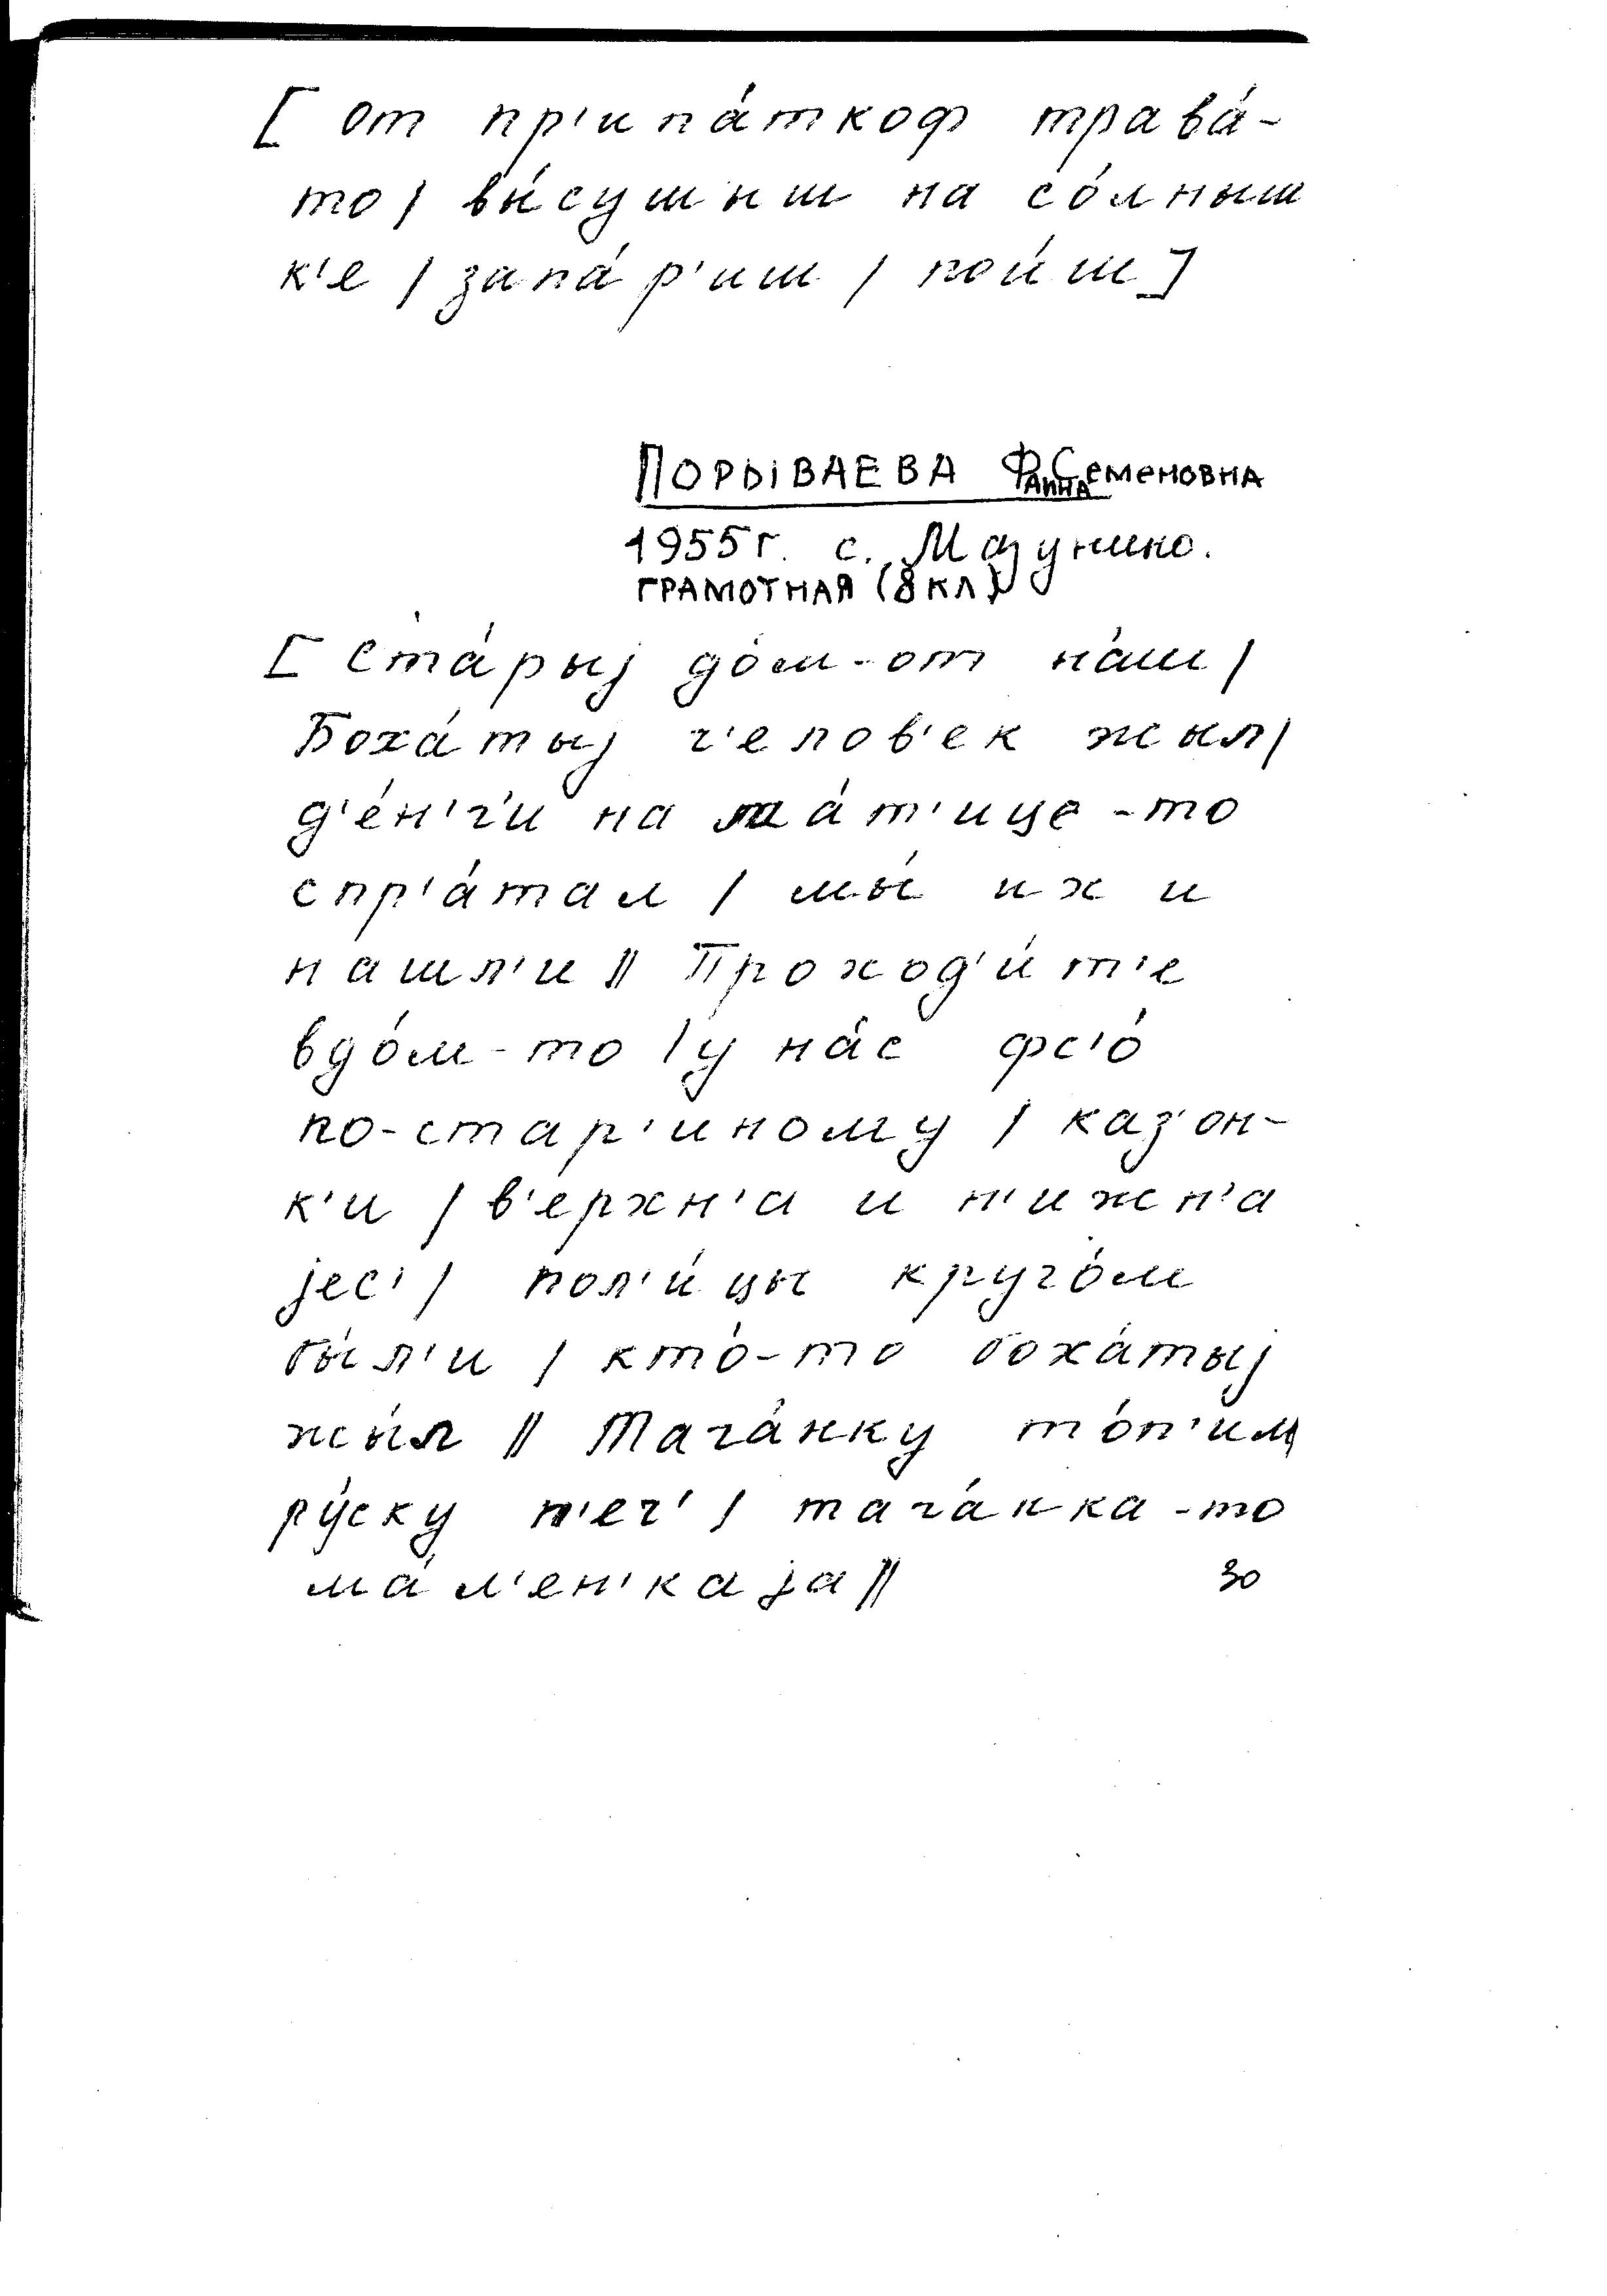 [ от пр'ипа́ткоф трава́-
то / вы́сушыш на со́лныш
к'е / запа́р'иш / пои́ш ]
ПОРЫВАЕВА ФАИНА СЕМЕНОВНА
1955г. с. Мазунино.
ГРАМОТНАЯ (8 КЛ)
[ ста́рыj до́м-от на́ш /
Боха́тыj ч'елов'ек жыл /
д'е́н'г'и на ма́т'ице-то
спр'а́тал / мы́ их и
нашл'и // Проход'и́т'е
вдо́м-то / у на́с фс'о́
по-стар'иному / каз'он-
к'и / в'ерхн'а и н'ижн'а
jес' / пол'и́цы круго́м
бы́л'и / кто́-то боха́тыj
жы́л // Тага́нку то́п'им
ру́ску п'еч' / тага́нка-то
ма́л'ен'каjа //
30